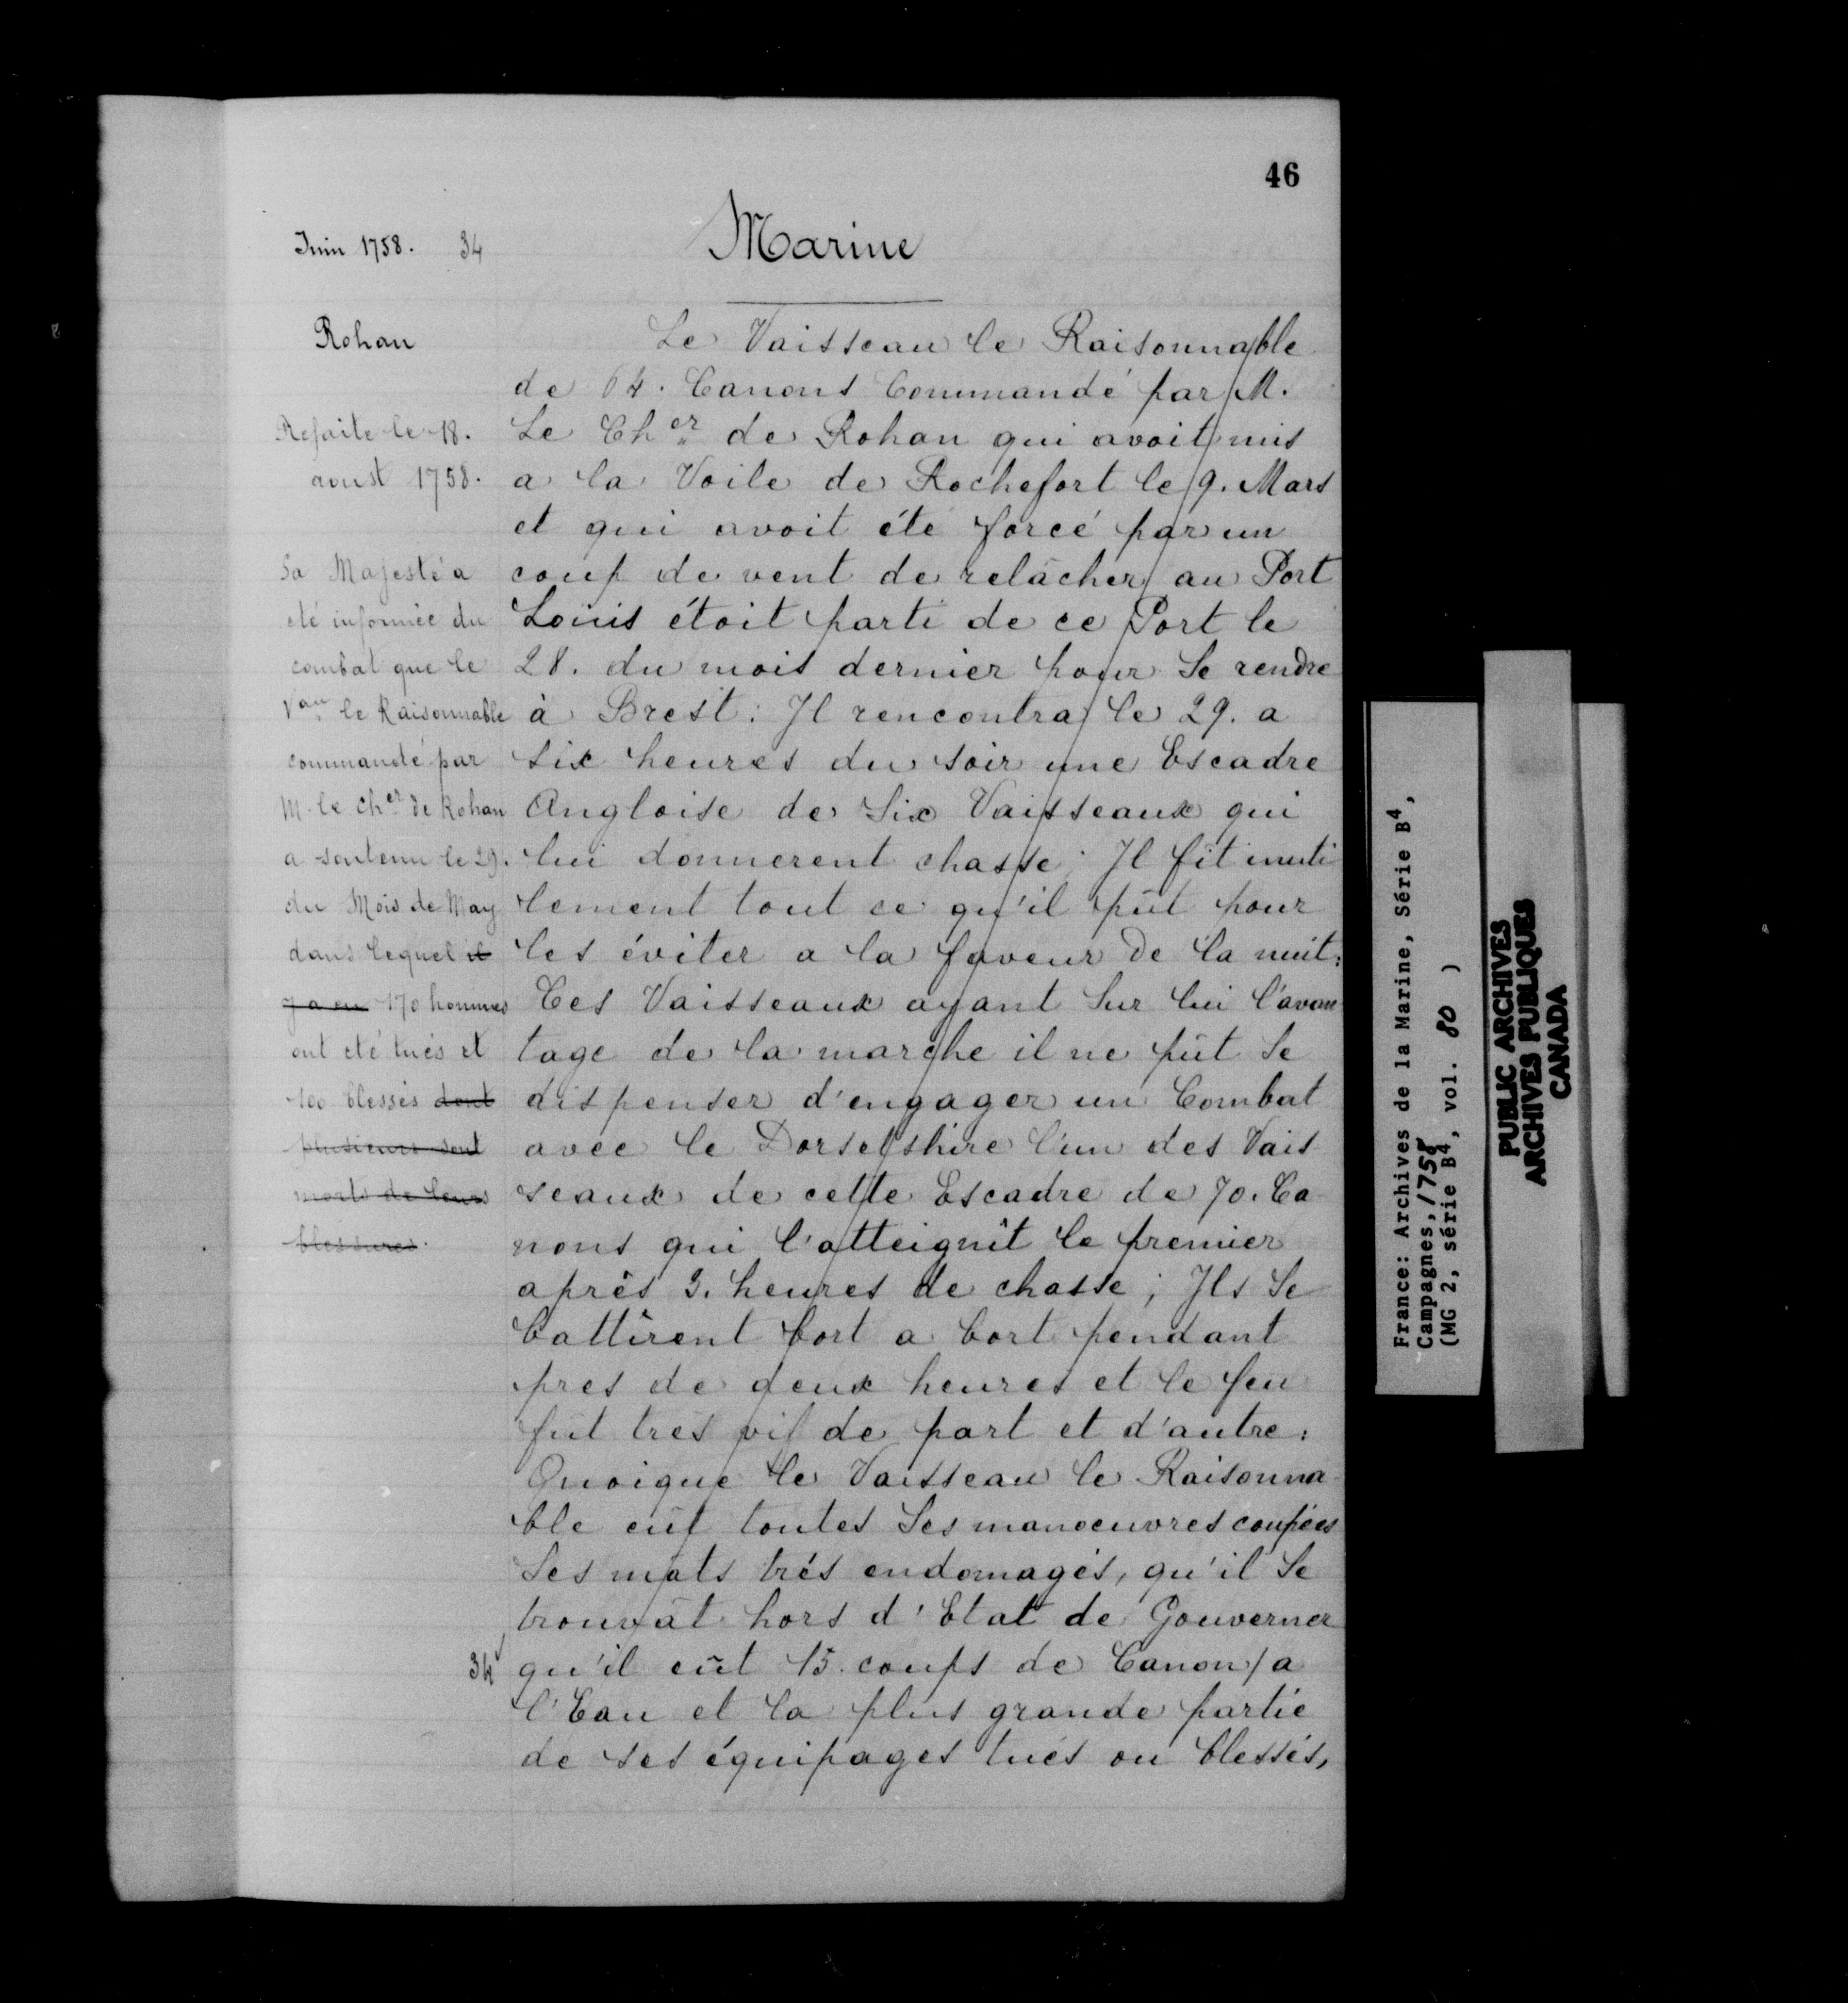 46
Juin 1758. 34
Marine
Rohan
Refaite le 18.
aoust 1758.
Sa Majesté a
eté informée du
combat que le
Vau le Raisonnable
commandé par
M. le Cher de Rohan
a soutenu le 29.
du Mois de May
dans lequel il
y a eu 170 hommes
ont eté tués et
100 blessés dont
plusieurs sont
morts de leurs
blessures.
Le Vaisseau le Raisonnable
de 64. Canons Commandé par M.
Le Cher de Rohan qui avoit mis
a la Voile de Rochefort le 9. Mars
et qui avoit éte forcé par un
coup de vent de relâcher au Port
Louis étoit parti de ce Port le
28. du mois dernier pour Se rendre
à Brest: Il rencontra le 29. a
Six heures du soir une Escadre
Angloise de Six Vaisseaux qui
lui donnerent chasse; Il fit inuti
lement tout ce qu'il pût pour
les éviter a la faveur de la nuit:
Ces Vaisseaux ayant Sur lui l'avan
tage de la marche il ne pût Se
dispenser d'engager un Combat
avec le Dorsetshire l'un des Vais
seaux de cette Escadre de 70. Ca
nons qui l'atteignît le premier
après 3. heures de chasse; Ils Se
battîrent bort a bort pendant
pres de deux heures et le feu
fût tres vif de part et d'autre:
Quoique le Vaisseau le Raisonna
ble eût toutes Ses manoeuvres coupées
Ses mats trés endomagés, qu'il Se
trouvât hors d'Etat de Gouverner
34 qu'il eût 15. coups de Canon / a
l'Eau et la plus grande partie
de ses équipages tués ou blessés,
France: Archives de la Marine, Série B4,
Campagnes, 1758
(MG 2, série B4, vol. 80 )
PUBLIC ARCHIVES
ARCHIVES PUBLIQUES
CANADA